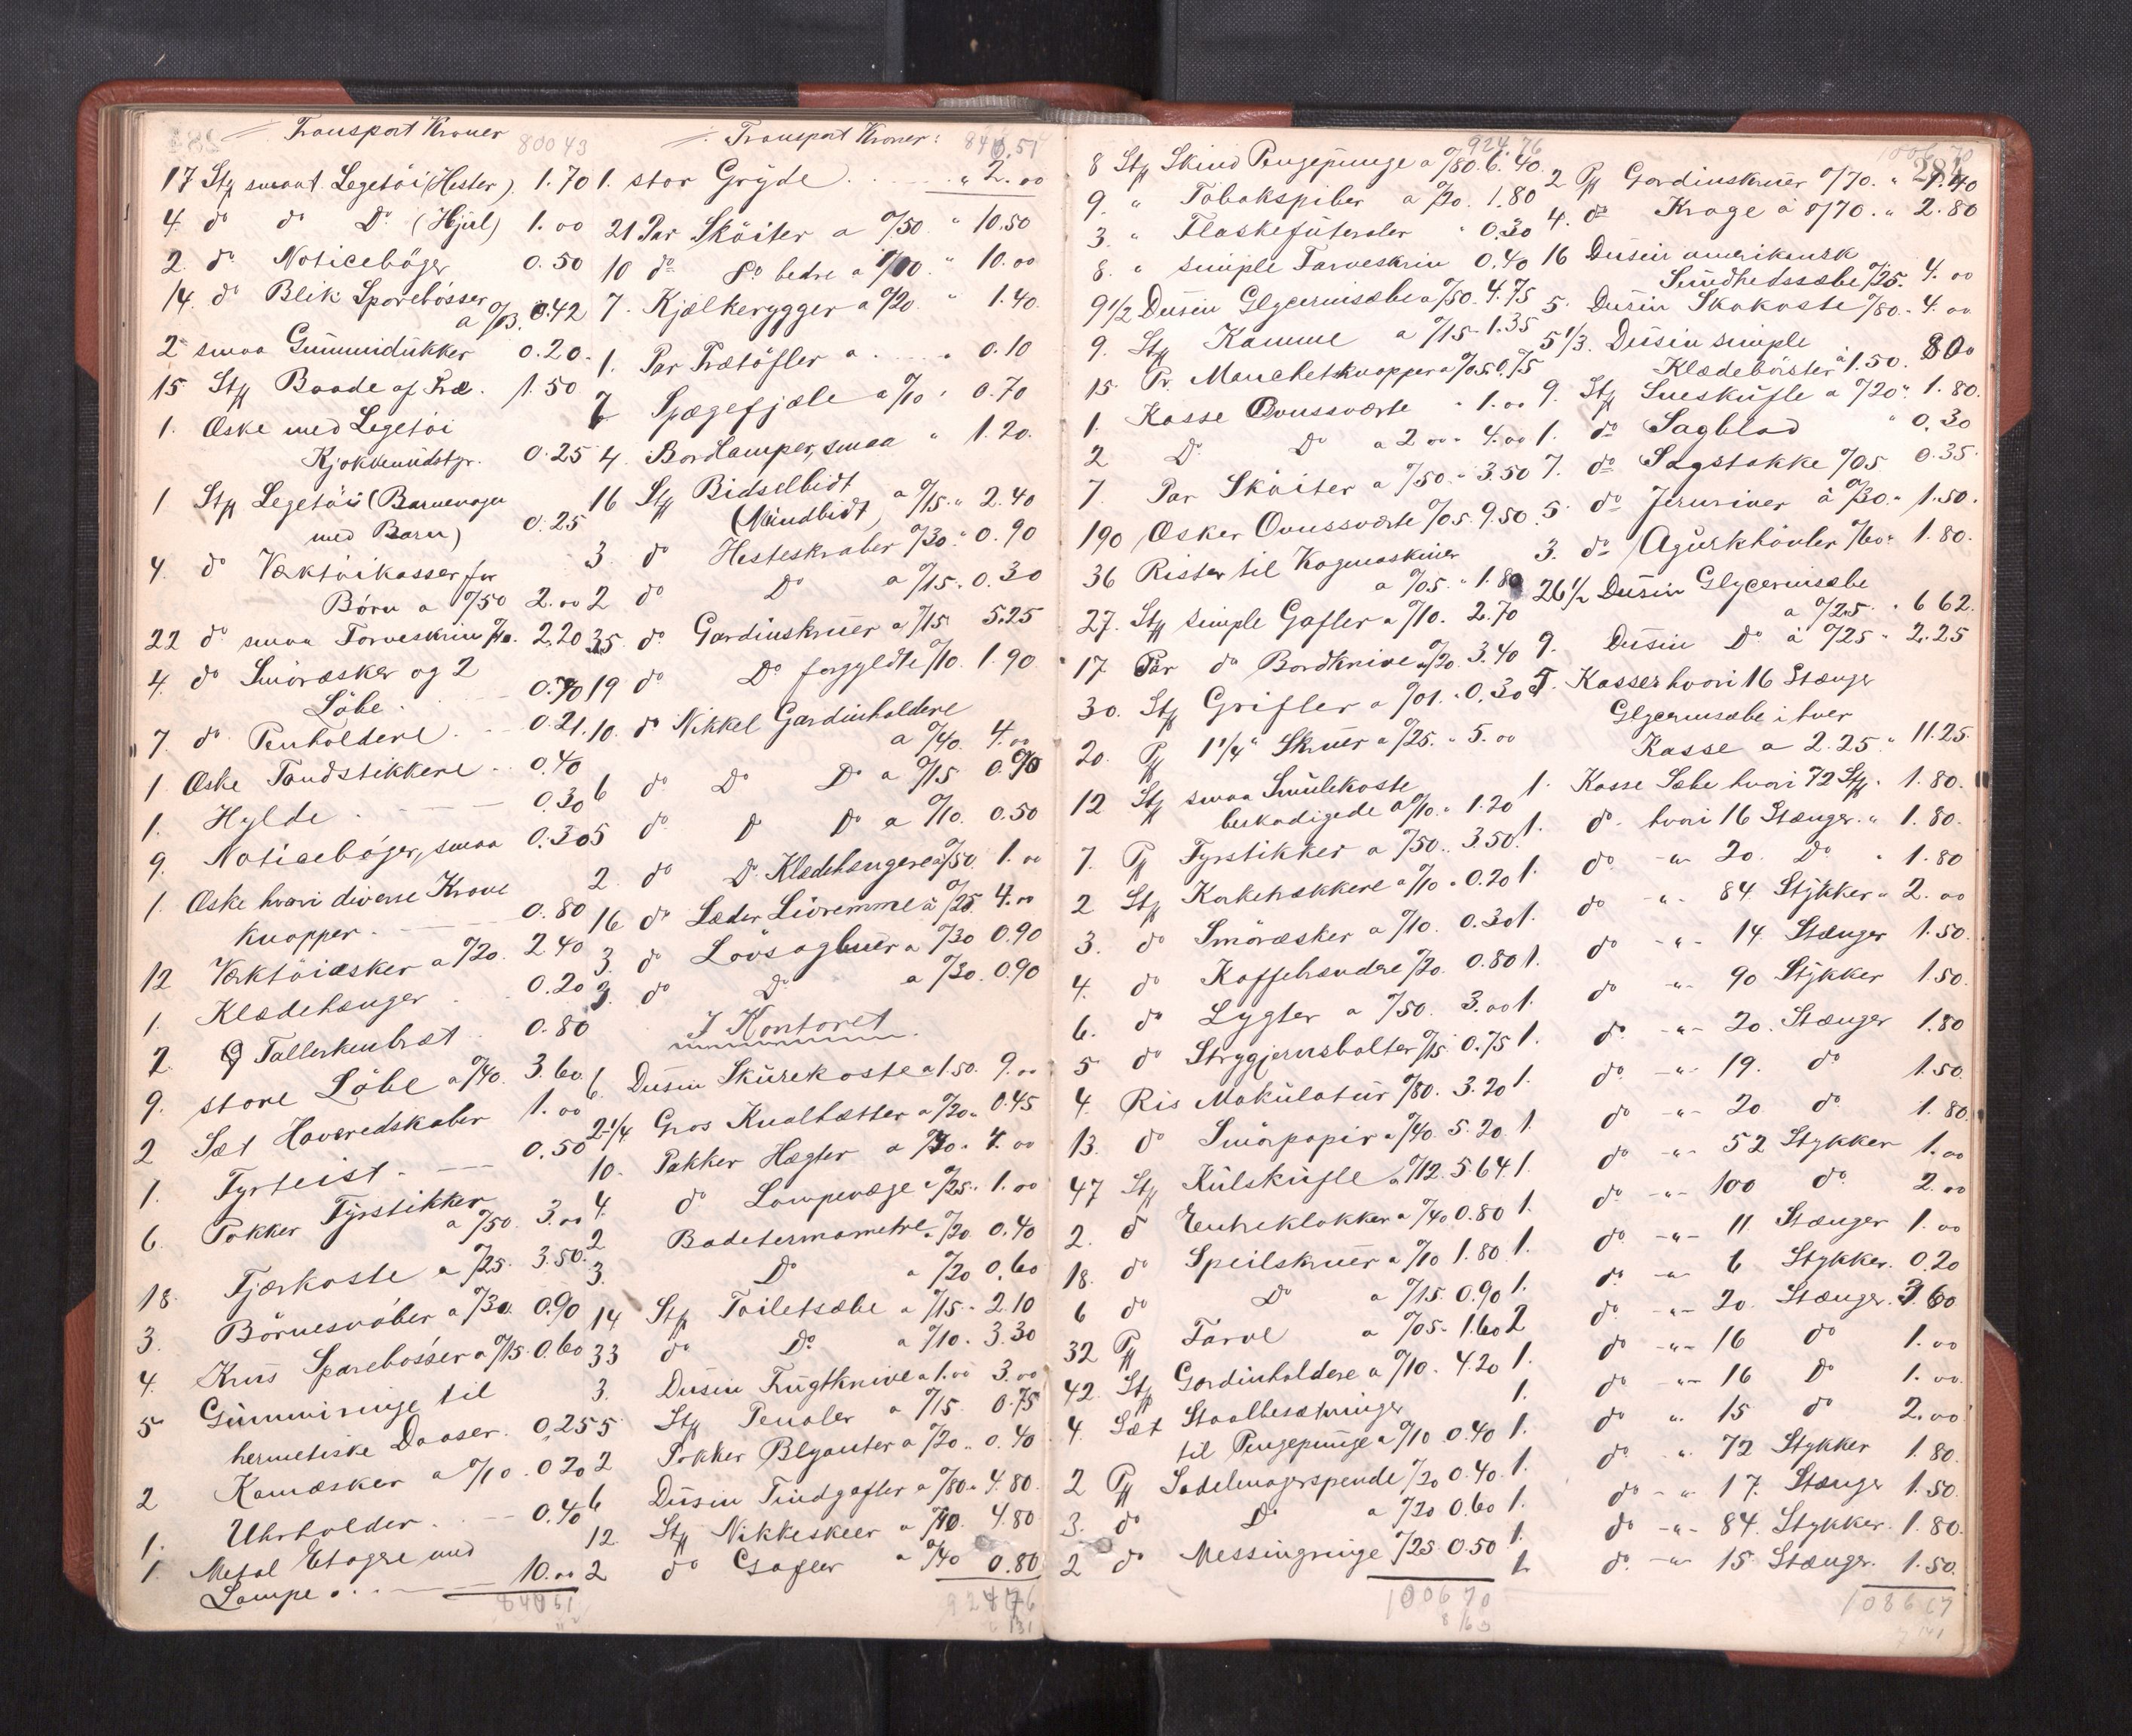 Transport Kroner 800 43
17 Stk smaat Legetöi (Hester) 1.70
4 do do Do (Hjul) 1.00
2 do Noticeböger 0.50
14 do Blik Sparebösser
a %03. 0.42
2 smaa Gummidukker 0.20
15 Stk Baade af Træ. 1.50
1. Æske med Legetöi
Kjökkenudstyr. 0.25
1 Stk Legetöi (Barnevogn
med Barn) 0.25
4 do Værktöikasser for
Börn a %50 2.00
22 do smaa Farveskrin %10. 2.20
4 do Smöræsker og 2
Löbe.
7 do Penholdere 0.21
1 Æske Tandstikkere 0.40
1. Hylde 0.30
9. Noticeböger, smaa 0.30
1. Æske hvori diverse Krave
knapper. 0.80
12 Værktöiæsker a %20. 2.40
1. Klædehænger 0.20
2 Tallerkenbræt 0.80
9. store Löbe a %40. 3.60
2 Sæt Haveredskaber 1.00
1. Tyrteist 0.50
6. Pakker Tyrstikker
a %50. 3.00
18. Tjærkoste a %25. 3.50
3. Börnesvöber a %30. 0.90
4. Krus Sparebösser a %15. 0.60
5 Gummiringe til
hermetiske Daaser. 0.25
2 Kamæsker a %10. 0.20
1. Uhrholder. 0.40
1. Metal Etagere med
Lampe 10.00
840 51
Transport Kroner: 840,51
1. stor Gryde 2.00
21 Par Sköiter a %50 " 10.50
10 do Do bedre a 10.00
7. Kjælkerygger a %20. " 1.40
1. Par Trætöfler a 0.10
7 Spegefjæle a %10 0.70
4. Bordlamper, smaa " 1.20
16 Stk Bidselbidt
(Mundbidt) a %15. 2.40
3. do Hesteskraber %30. 0.90
2 do Do a %15. 0.30
35. do Gardinskruer a %15. 5.25
19 do Do forgyldte %10. 1.90
10. do Nikkel Gardinholdere
a %40. 4.00
6 do Do Do a %15 0.90
5 do Do Do a %10. 0.50
2. do Do Klædehængere a %50. 1.00
16 do Læder Livremme a %25 4.00
3. do Lövsagbuer a %30 0.90
3. do Do a %30. 0.90
I Kontoret
6. Dusin Skurekoste a 1.50. 9.00
2 1/4 Gros Knalhætter a %20. 0.45
10. Pakker Hægter a %40. 4.00
4. do Lampevæge a %25. 1.00
2 Badetermometre %20 0.40
3. Do a %20 0.60
14 Stk Toiletsæbe a %15. 2.10
33 do Do a %10. 3.30
3. Dusin Frugtknive a 1.00 3.00
5 Stk Penaler a %15. 0.75
2 Pakker Blyanter a %20. 0.40
6 Dusin Tindgafler a %80. 4.80
12. Stk Nikkeskeer a %40. 4.80
2 do Gafler a %40 0.80
924 76
924.76
8 Stk Skind Pengepunge a %80. 6.40
9. " Tobakspiber a %20. 1.80
3. " Flaskefuteraler " 0.30
8. " simple Farveskrin 0.40
9 1/2 Dusin Glycerinsæbe a %50. 4.75
9. Stk Kamme a %15. 1.35
15 Pr. Manchetknapper a %05. 0.75
1. Kasse Ovnsværte " 1.00
2 Do Do a 2.00. 4.00
7 Par Sköiter a %50. 3.50
190 Æsker Ovnsværte %05. 9.50
36 Rister til Kogmaskiner
a %05. 1.80
27. Stk simple Gafler a %10. 2.70
17 Par do Bordknive a %20. 3.40
30. Stk Grifler a %01. 0.30
20. Pk 1 1/4" Skruer a %25. " 5.00
12 Stk smaa Smulekoste
beskadigede a %10. 1.20
7. Pk Tyrstikker a %50. 3.50
2 Stk Kakehakkere a %10. 0.20
3. do Smöræsker a %10. 0.30
4. do Kaffebrændere %20. 0.80
6. do Lygter a %50. 3.00
5 do Strygjernsbolter %15. 0.75
4. Ris Makulatur %80. 3.20
13. do Smörpapir a %40. 5.20
47 Stk Kulskufle a %12. 5.64
2. do a %40 0.80
18. do Speilskruer a %10 1.80
6 do Do a %15. 0.90
32 Pk Farve a %05. 1.60
42. Stk Gardinholdere a %10. 4.20
4. Sæt Staalbesætninger
til Pengepunge a %10 0.40
2 Pk Sadelmagerspende %20 0.40
3. do Do a %20 0.60
2 do Messingringe %25 0.50
1006 70
1006 70
284
2 Pk Gardinskruer %70. " 1.40
4. do Krage a %70. " 2.80
16 Dusin amerikansk
Sundhedssæbe %25. 4.00
5. Dusin Skokoste %80. 4.00
5 1/3. Dusin simple
Klædebörster a 1.50. 8.00
9. Stk Sneskufle a %20 1.80
1. do Sagblad " 0.30
7. do Sagstakke %05 0.35
5. do Jernriver a %30. 1.50
3. do Agurkhövler %60. 1.80
26 1/2 Dusin Glycerinsæbe
a %25. 6 62
9. Dusin Do a %25 " 2.25
5. Kasser hvori 16 Stænger
Glycerinsæbe i hver
Kasse a 2.25. 11.25
1. Kasse Sæbe hvori 72 Stk. 1.80
1. do hvori 16 Stænger. " 1.80
1. do -"- 20. Do " 1.80
1. do -"- 84 Stykker " 2.00
1. do -"- 14 Stænger 1.50
1. do -"- 90 Stykker 1.50
1. do -"- 20. Stænger 1.80
1. do -"- 19. do 1.50
1. do -"- 20 do 1.80
1. do -"- 52 Stykker 1.00
1. do -"- 100 do 2.00
1. do -"- 11 Stænger 1.00
1. do -"- 6 Stykker. 0.20
2 do -"- 20. Stænger. 3.60
1. do -"- 16 do 1.00
1. do -"- 16 Do 1.00
1. do " 15 do 2.00
1. do " 72 Stykker 1.80
1. do -"- 17. Stænger 1.50
1. do -"- 84. Stykker. 1.80
1. do -"- 15 Stænger. 1.50
1086 67